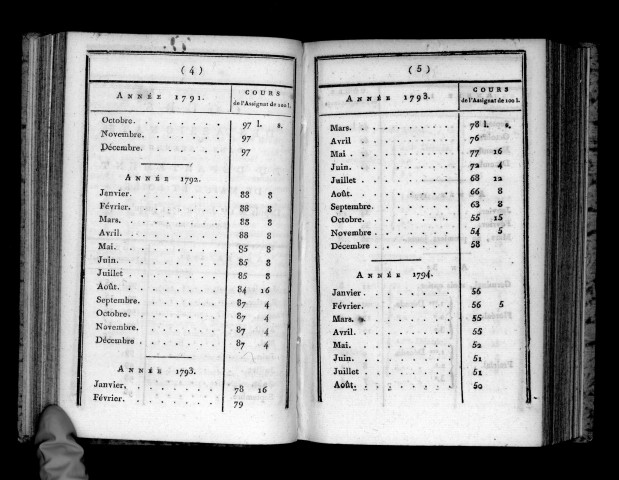 ( 4 )
ANNÉE 1791. COURS de l'Assignat de 100 l.
Octobre. 97 l. s.
Novembre. 97
Décembre. 97
ANNÉE 1792.
Janvier. 88 8
Février. 88 8
Mars. 88 8
Avril. 88 8
Mai. 85 8
Juin. 85 8
Juillet 85 8
Août. 84 16
Septembre. 87 4
Octobre. 87 4
Novembre. 87 4
Décembre 87 4
ANNÉE 1793.
Janvier. 78 16
Février. 79
( 5 )
ANNÉE 1793. COURS de l'Assignat de 100 l.
Mars. 78 l. s.
Avril 76
Mai 77 16
Juin. 72 4
Juillet 68 12
Août. 66 8
Septembre. 63 8
Octobre. 55 15
Novembre 54 5
Décembre 58
ANNÉE 1794.
Janvier 56
Février. 56 5
Mars. 55
Avril. 55
Mai. 52
Juin. 51
Juillet 51
Août. 50